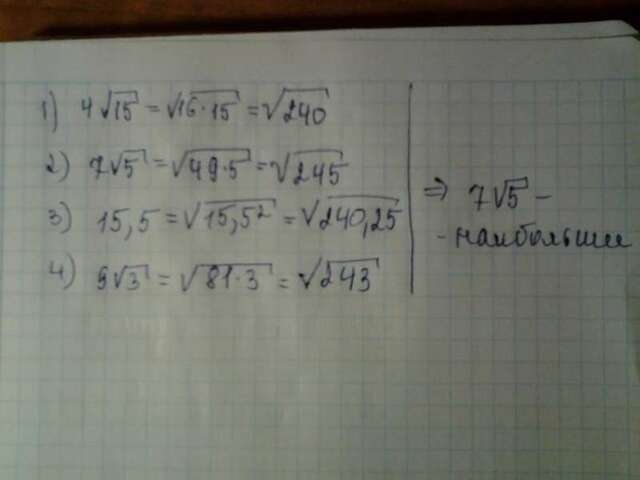 1) 4√15 = √16·15 = √240
2) 7√5 = √49·5 = √245
3) 15,5 = √15,5² = √240,25
4) 9√3 = √81·3 = √243
⇒ 7√5 –
- наибольшее